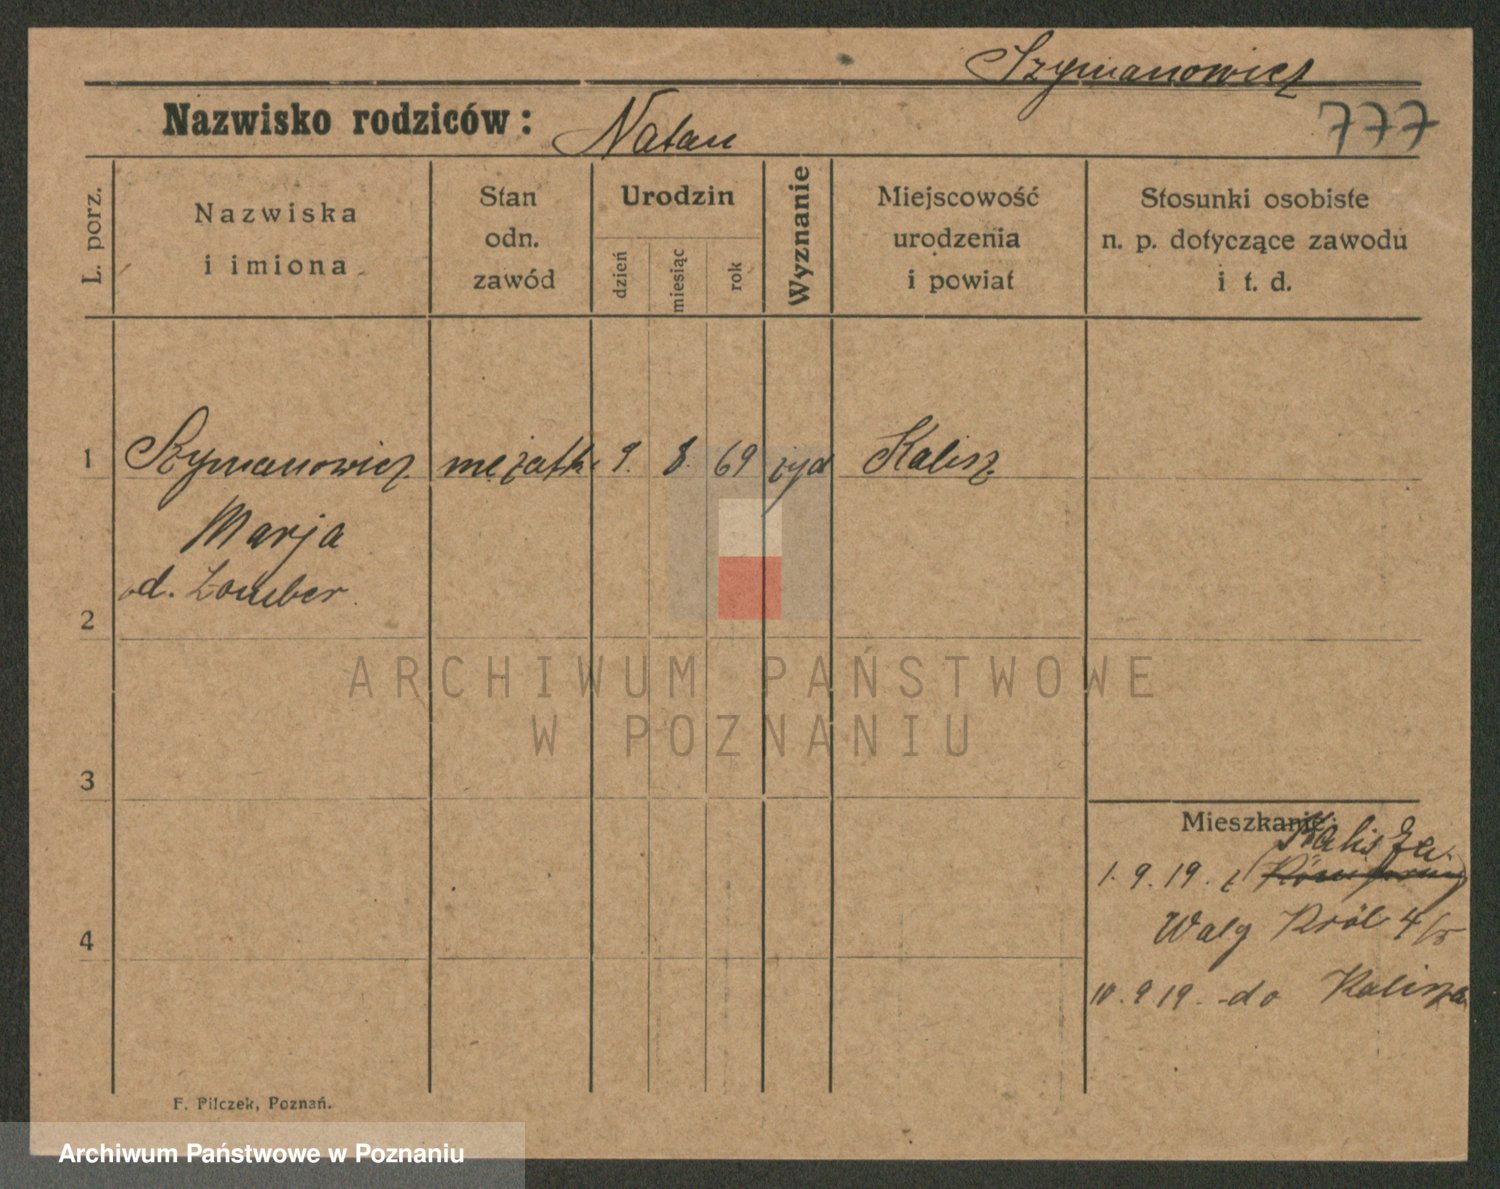 Szymanowicz
Nazwisko rodziców: Natan
777
L. porz.
Nazwiska
i imiona
Stan
odn.
zawód
Urodzin
dzień
miesiąc
rok
Wyznanie
Miejscowość
urodzenia
i powiat
Stosunki osobiste
n. p. dotyczące zawodu
i t. d.
1 Szymanowicz mężatka 9. 8. 69 żyd Kalisz
Marja
Lomber
2
3
4
Mieszkanie:
Kalisza
1. 9. 19. z
Król 4/5
10. 9 19. do Kalisza
F. Pilczek, Poznań.
ARCHIWUM PAŃSTWOWE
W POZNANIU
Archiwum Państwowe w Poznaniu